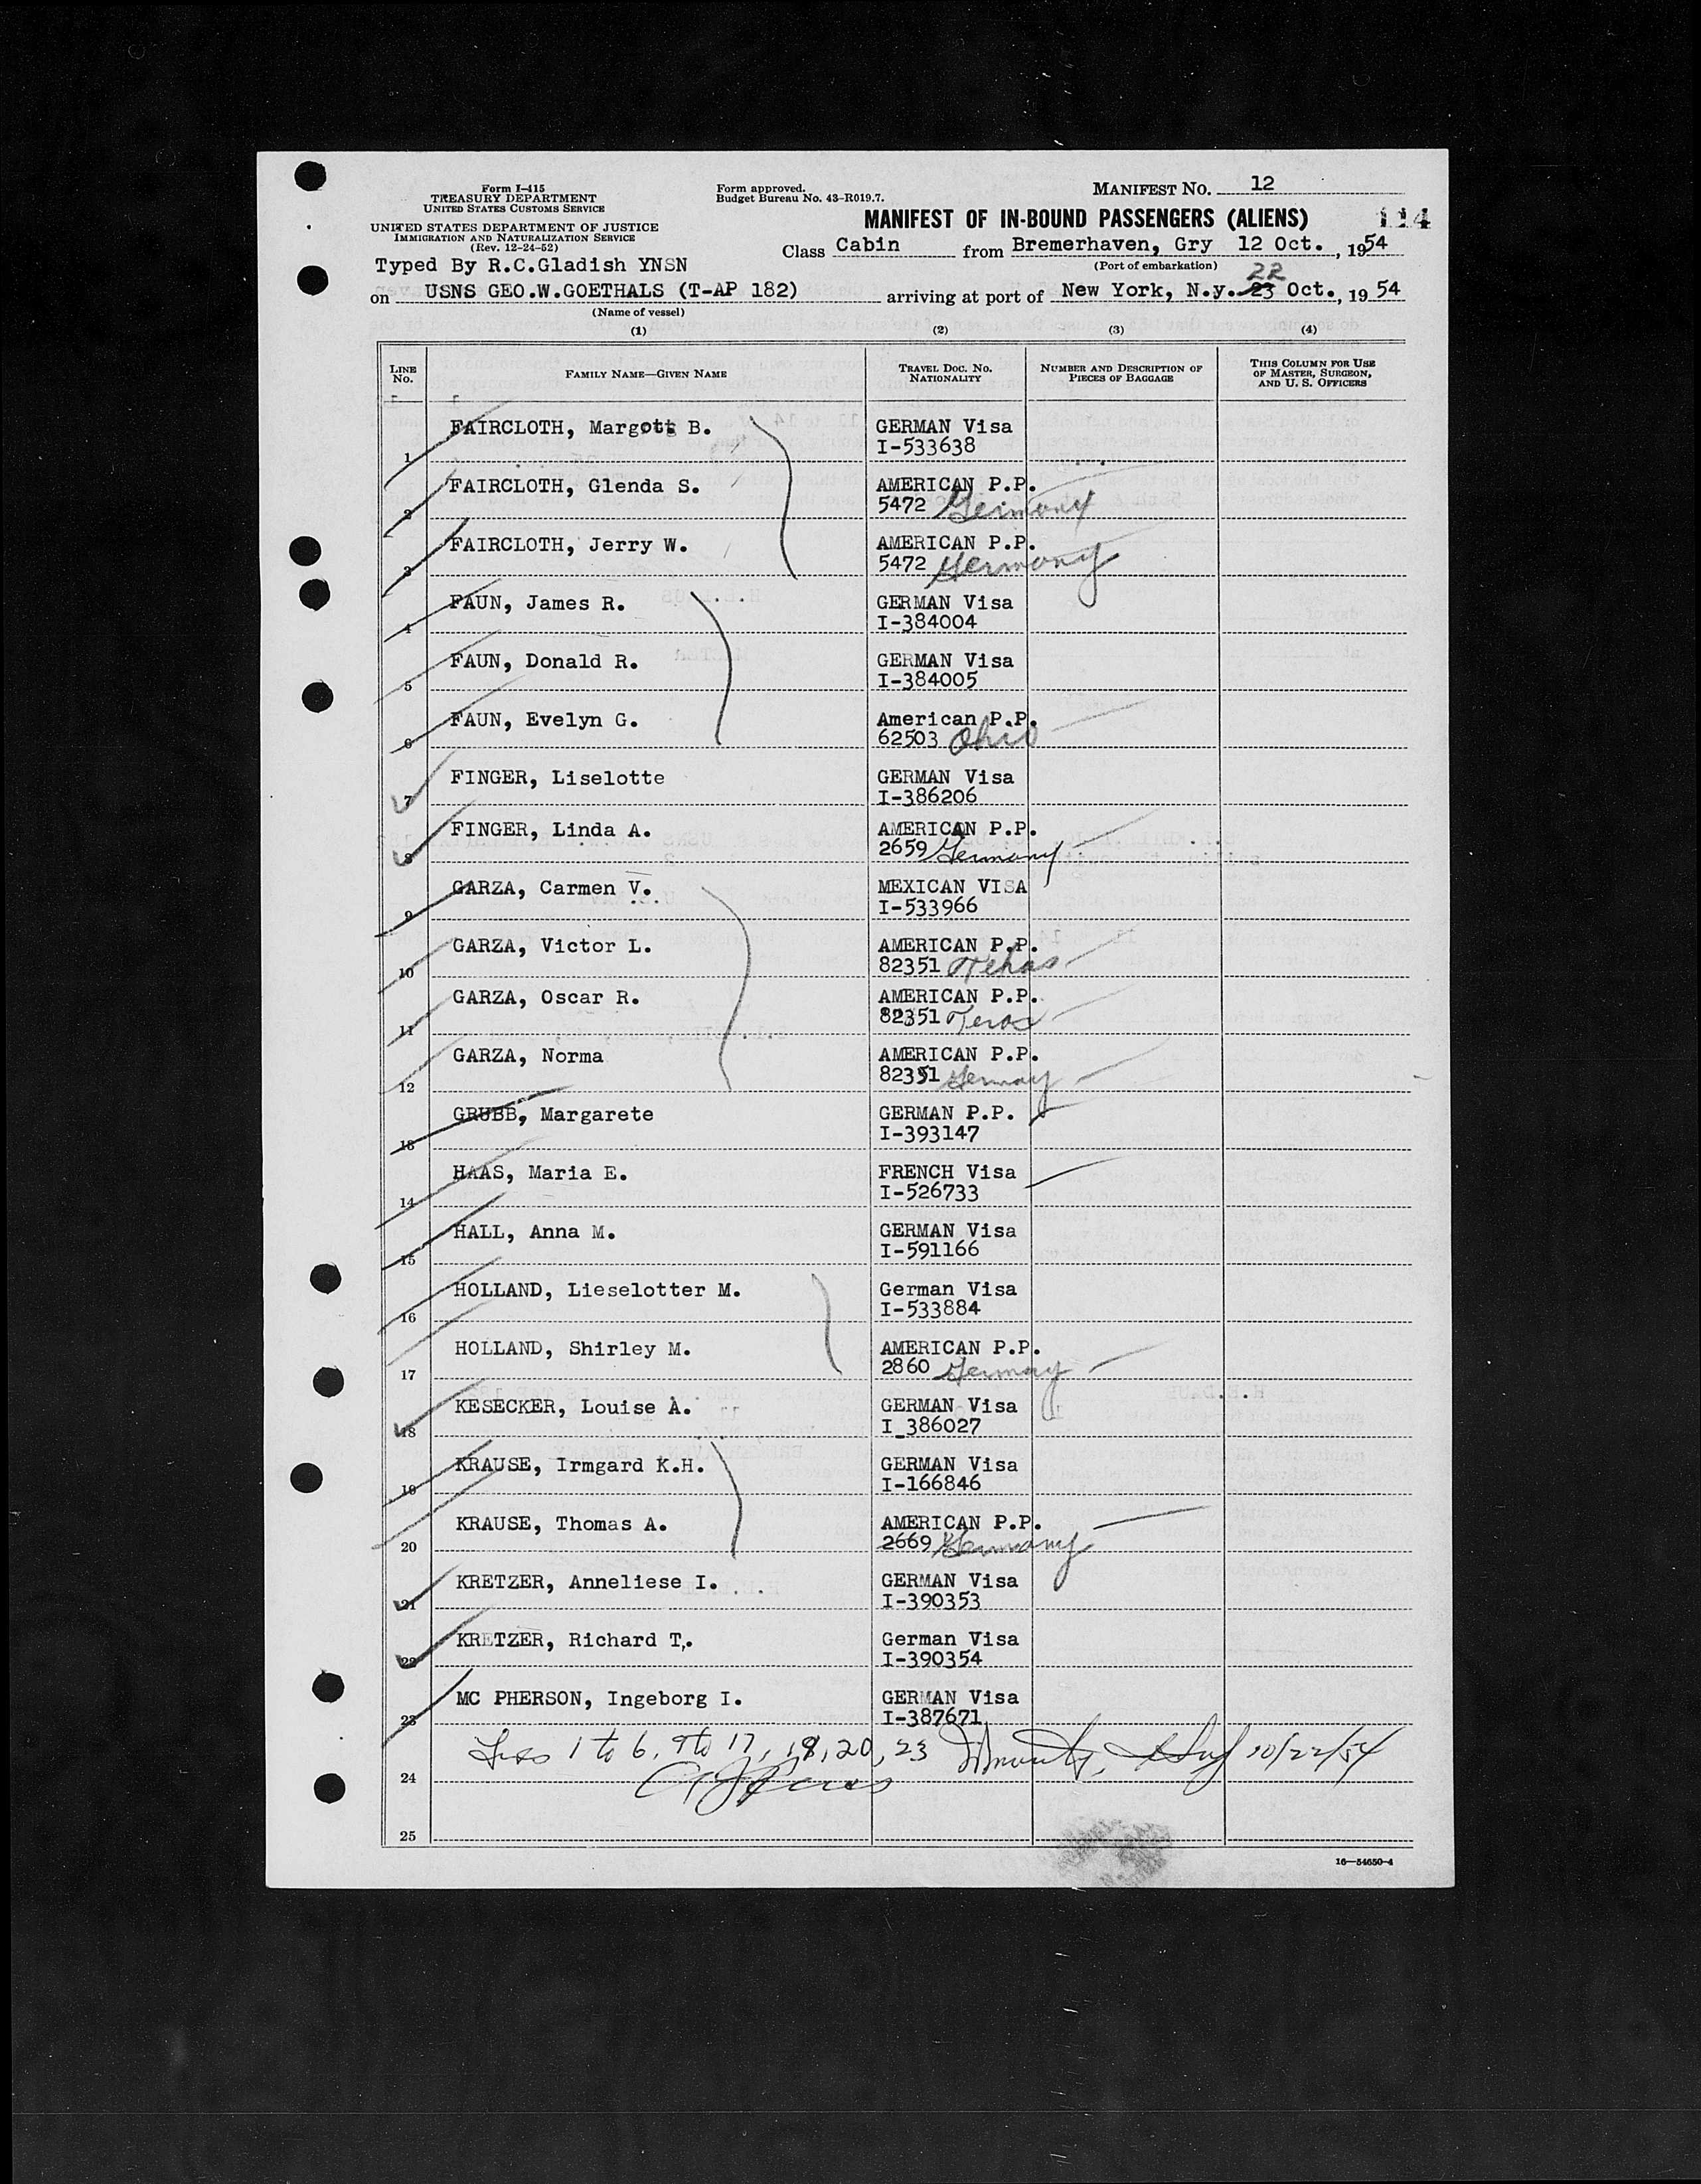 Form I-415
TREASURY DEPARTMENT
UNITED STATES CUSTOMS SERVICE
UNITED STATES DEPARTMENT OF JUSTICE
IMMIGRATION AND NATURALIZATION SERVICE
(Rev. 12-24-52)
Typed By R.C.Gladish YNSN
Form approved.
Budget Bureau No. 43-R019.7.
MANIFEST NO. 12
MANIFEST OF IN-BOUND PASSENGERS (ALIENS) 114
Class Cabin from Bremerhaven, Gry 12 Oct., 1954
(Port of embarkation)
on USNS GEO.W.GOETHALS (T-AP 182) arriving at port of New York, N.y. 23 22 Oct., 1954
(Name of vessel)
(1) (2) (3) (4)
LINE NO. FAMILY NAME—GIVEN NAME TRAVEL DOC. NO. NATIONALITY NUMBER AND DESCRIPTION OF PIECES OF BAGGAGE THIS COLUMN FOR USE OF MASTER, SURGEON, AND U. S. OFFICERS
1 FAIRCLOTH, Margott B. GERMAN Visa
I-533638
2 FAIRCLOTH, Glenda S. AMERICAN P.P.
5472 Germany
3 FAIRCLOTH, Jerry W. AMERICAN P.P.
5472 Germany
4 FAUN, James R. GERMAN Visa
I-384004
5 FAUN, Donald R. GERMAN Visa
I-384005
6 FAUN, Evelyn G. American P.P.
62503 Ohio
7 FINGER, Liselotte GERMAN Visa
I-386206
8 FINGER, Linda A. AMERICAN P.P.
2659 Germany
9 GARZA, Carmen V. MEXICAN VISA
I-533966
10 GARZA, Victor L. AMERICAN P.P.
82351 Texas
11 GARZA, Oscar R. AMERICAN P.P.
82351 Texas
12 GARZA, Norma AMERICAN P.P.
82351 Germany
13 GRUBB, Margarete GERMAN P.P.
I-393147
14 HAAS, Maria E. FRENCH Visa
I-526733
15 HALL, Anna M. GERMAN Visa
I-591166
16 HOLLAND, Lieselotter M. German Visa
I-533884
17 HOLLAND, Shirley M. AMERICAN P.P.
2860 Germany
18 KESECKER, Louise A. GERMAN Visa
I_386027
19 KRAUSE, Irmgard K.H. GERMAN Visa
I-166846
20 KRAUSE, Thomas A. AMERICAN P.P.
2669 Germany
21 KRETZER, Anneliese I. GERMAN Visa
I-390353
22 KRETZER, Richard T. German Visa
I-390354
23 MC PHERSON, Ingeborg I. GERMAN Visa
I-387671
1 to 6, 9 to 17, 19, 20, 23 10/22/54
24
25
16—54650-4